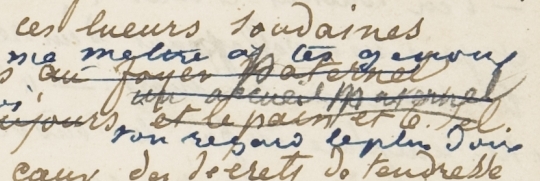 ces lueurs soudaines
me mettre à tes genoux
s au foyer Paternel
un accueil Maternel
oujours et le pain et le sel.
son regard le plus doux
eaux des secrets de tendresse